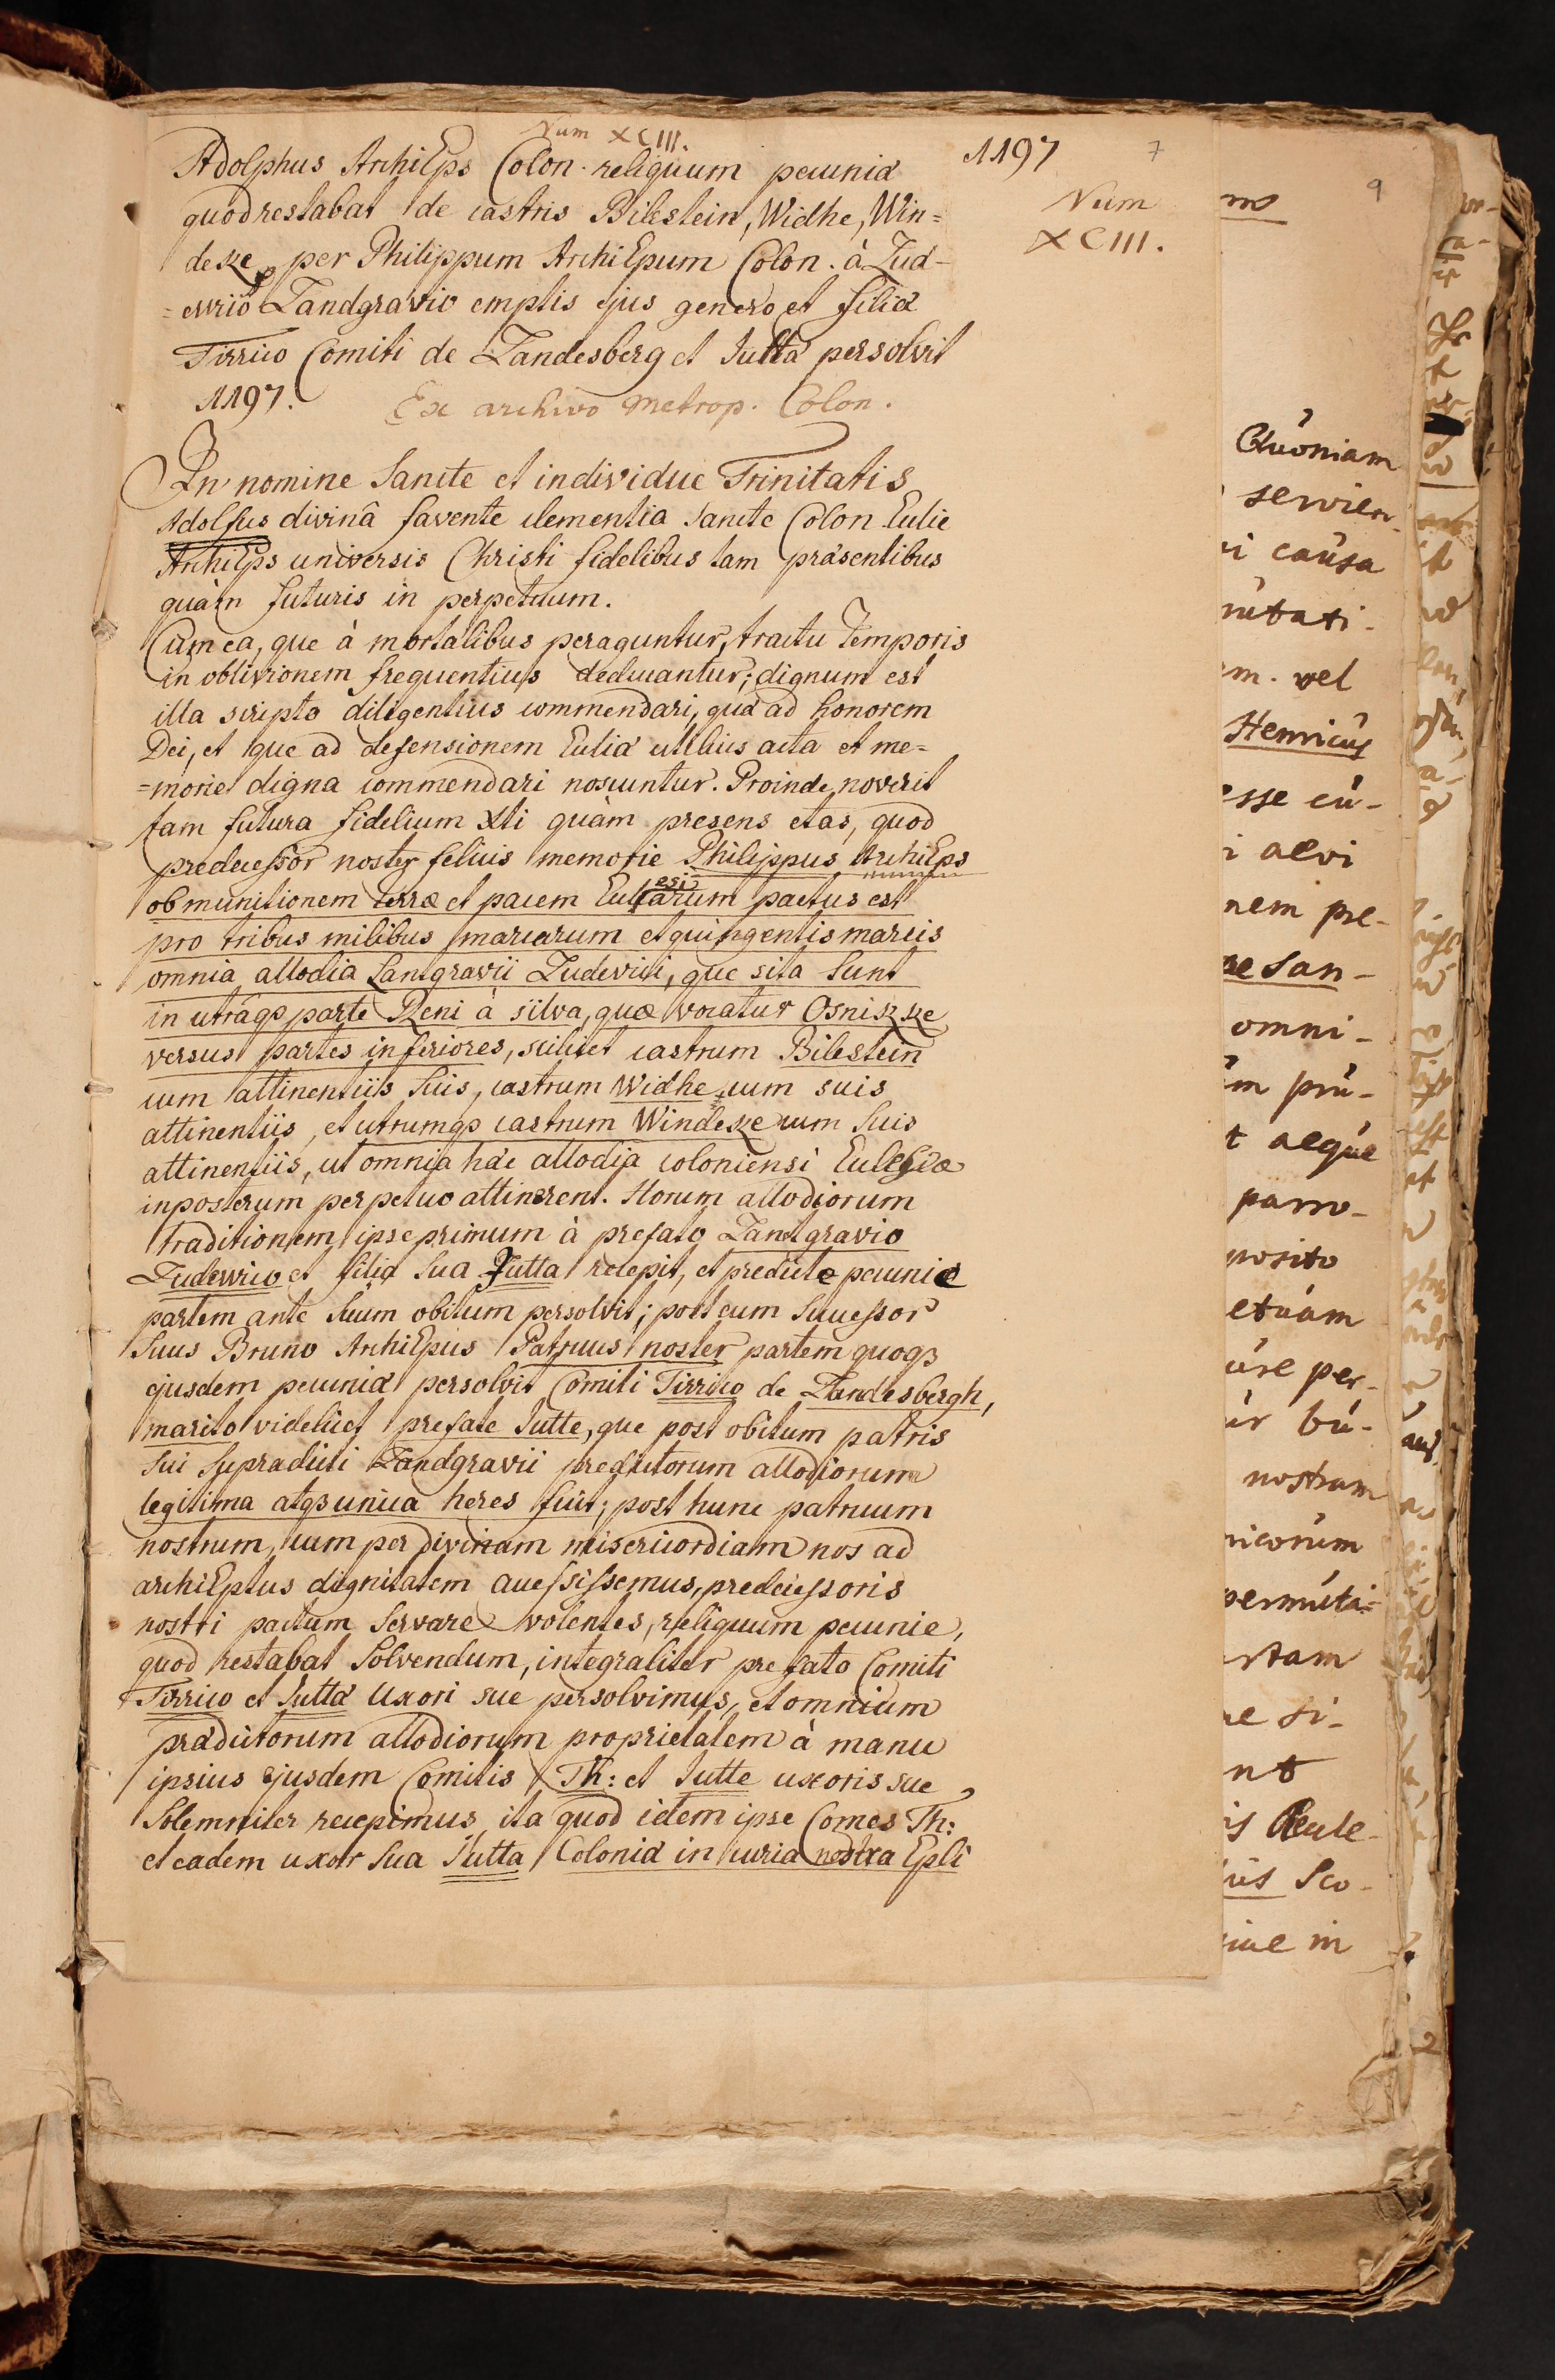 Num XCIII.
Adolphus ArchiEps Colon. reliquum pecuniæ
quod restabat de castris Bilestein, Widhe, Win=
deke per Philippum ArchiEpum Colon. à Lud-
=ewico Landgravio emptis ejus genero et filiæ
Tirrico Comiti de Landesberg et Juttæ persolvit
1197.
Ex archivo Metrop. Colon.
1197
7
Num
XCIII.
In nomine Sancte et individue Trinitatis
Adolfus divinâ favente clementia Sancte Colon Ecclie
ArchiEps universis Christi fidelibus tam præsentibus
quàm futuris in perpetuum.
Cùm ea, que à mortalibus peraguntur, tractu Temporis
in oblivionem frequentius deducantur; dignum est
illa scripto diligentius commendari, quæ ad honorem
Dei, et que ad defensionem Eccliæ utilius acta et me=
=morie digna commendari noscuntur. Proinde noverit
tam futura fidelium Xti quàm presens etas, quod
predecessor noster felicis memorie Philippus ArchiEps
ob munitionem terræ et pacem Ecclesiarum pactus est
pro tribus milibus marcarum et quingentis marcis
omnia allodia Lantgravii Ludevici, que sita sunt
in utraque parte Reni à silva, quæ vocatur Osniszke
versus partes inferiores, scilicet castrum Bilestein
cum attinentiis suis, castrum Widhe cum suis
attinentiis, et utrumque castrum Windeke cum suis
attinentiis, ut omnia hæc allodia coloniensi Eclesiæ
inposterum perpetuo attinerent. Horum allodiorum
traditionem ipse primum à prefato Lantgravio
Ludewico et filia sua Jutta recepit, et predicte pecunie
partem ante suum obitum persolvit; post eum successor
suus Bruno ArchiEpus Patruus noster partem quoque
ejusdem pecuniæ persolvit Comiti Tirrico de Landesbergh,
marito videlicet prefate Jutte, que post obitum patris
sui supradicti Landgravii predictorum allodiorum
legitima atque unica heres fuit; post hunc patruum
nostrum, cum per divinam misericordiam nos ad
archiEptus dignitatem accessissemus, predecessoris
nostri pactum servare volentes, reliquum pecunie,
quod restabat solvendum, integraliter prefato Comiti
Tirrico et Juttæ Uxori sue persolvimus, et omnium
prædictorum allodiorum proprietatem à manu
ipsius ejusdem Comitis Th: et Jutte uxoris sue
Solemniter recepimus, ita quod idem ipse Comes Th:
et eadem uxor sua Jutta Coloniæ in curia nostra Epli
9
Quoniam
servien-
causa
vel
Henricus
esse cu-
aevi
nem pre-
San-
omni-
pru-
aeque
parro-
etuam
per-
bu-
nostram
si-
Sco-
in